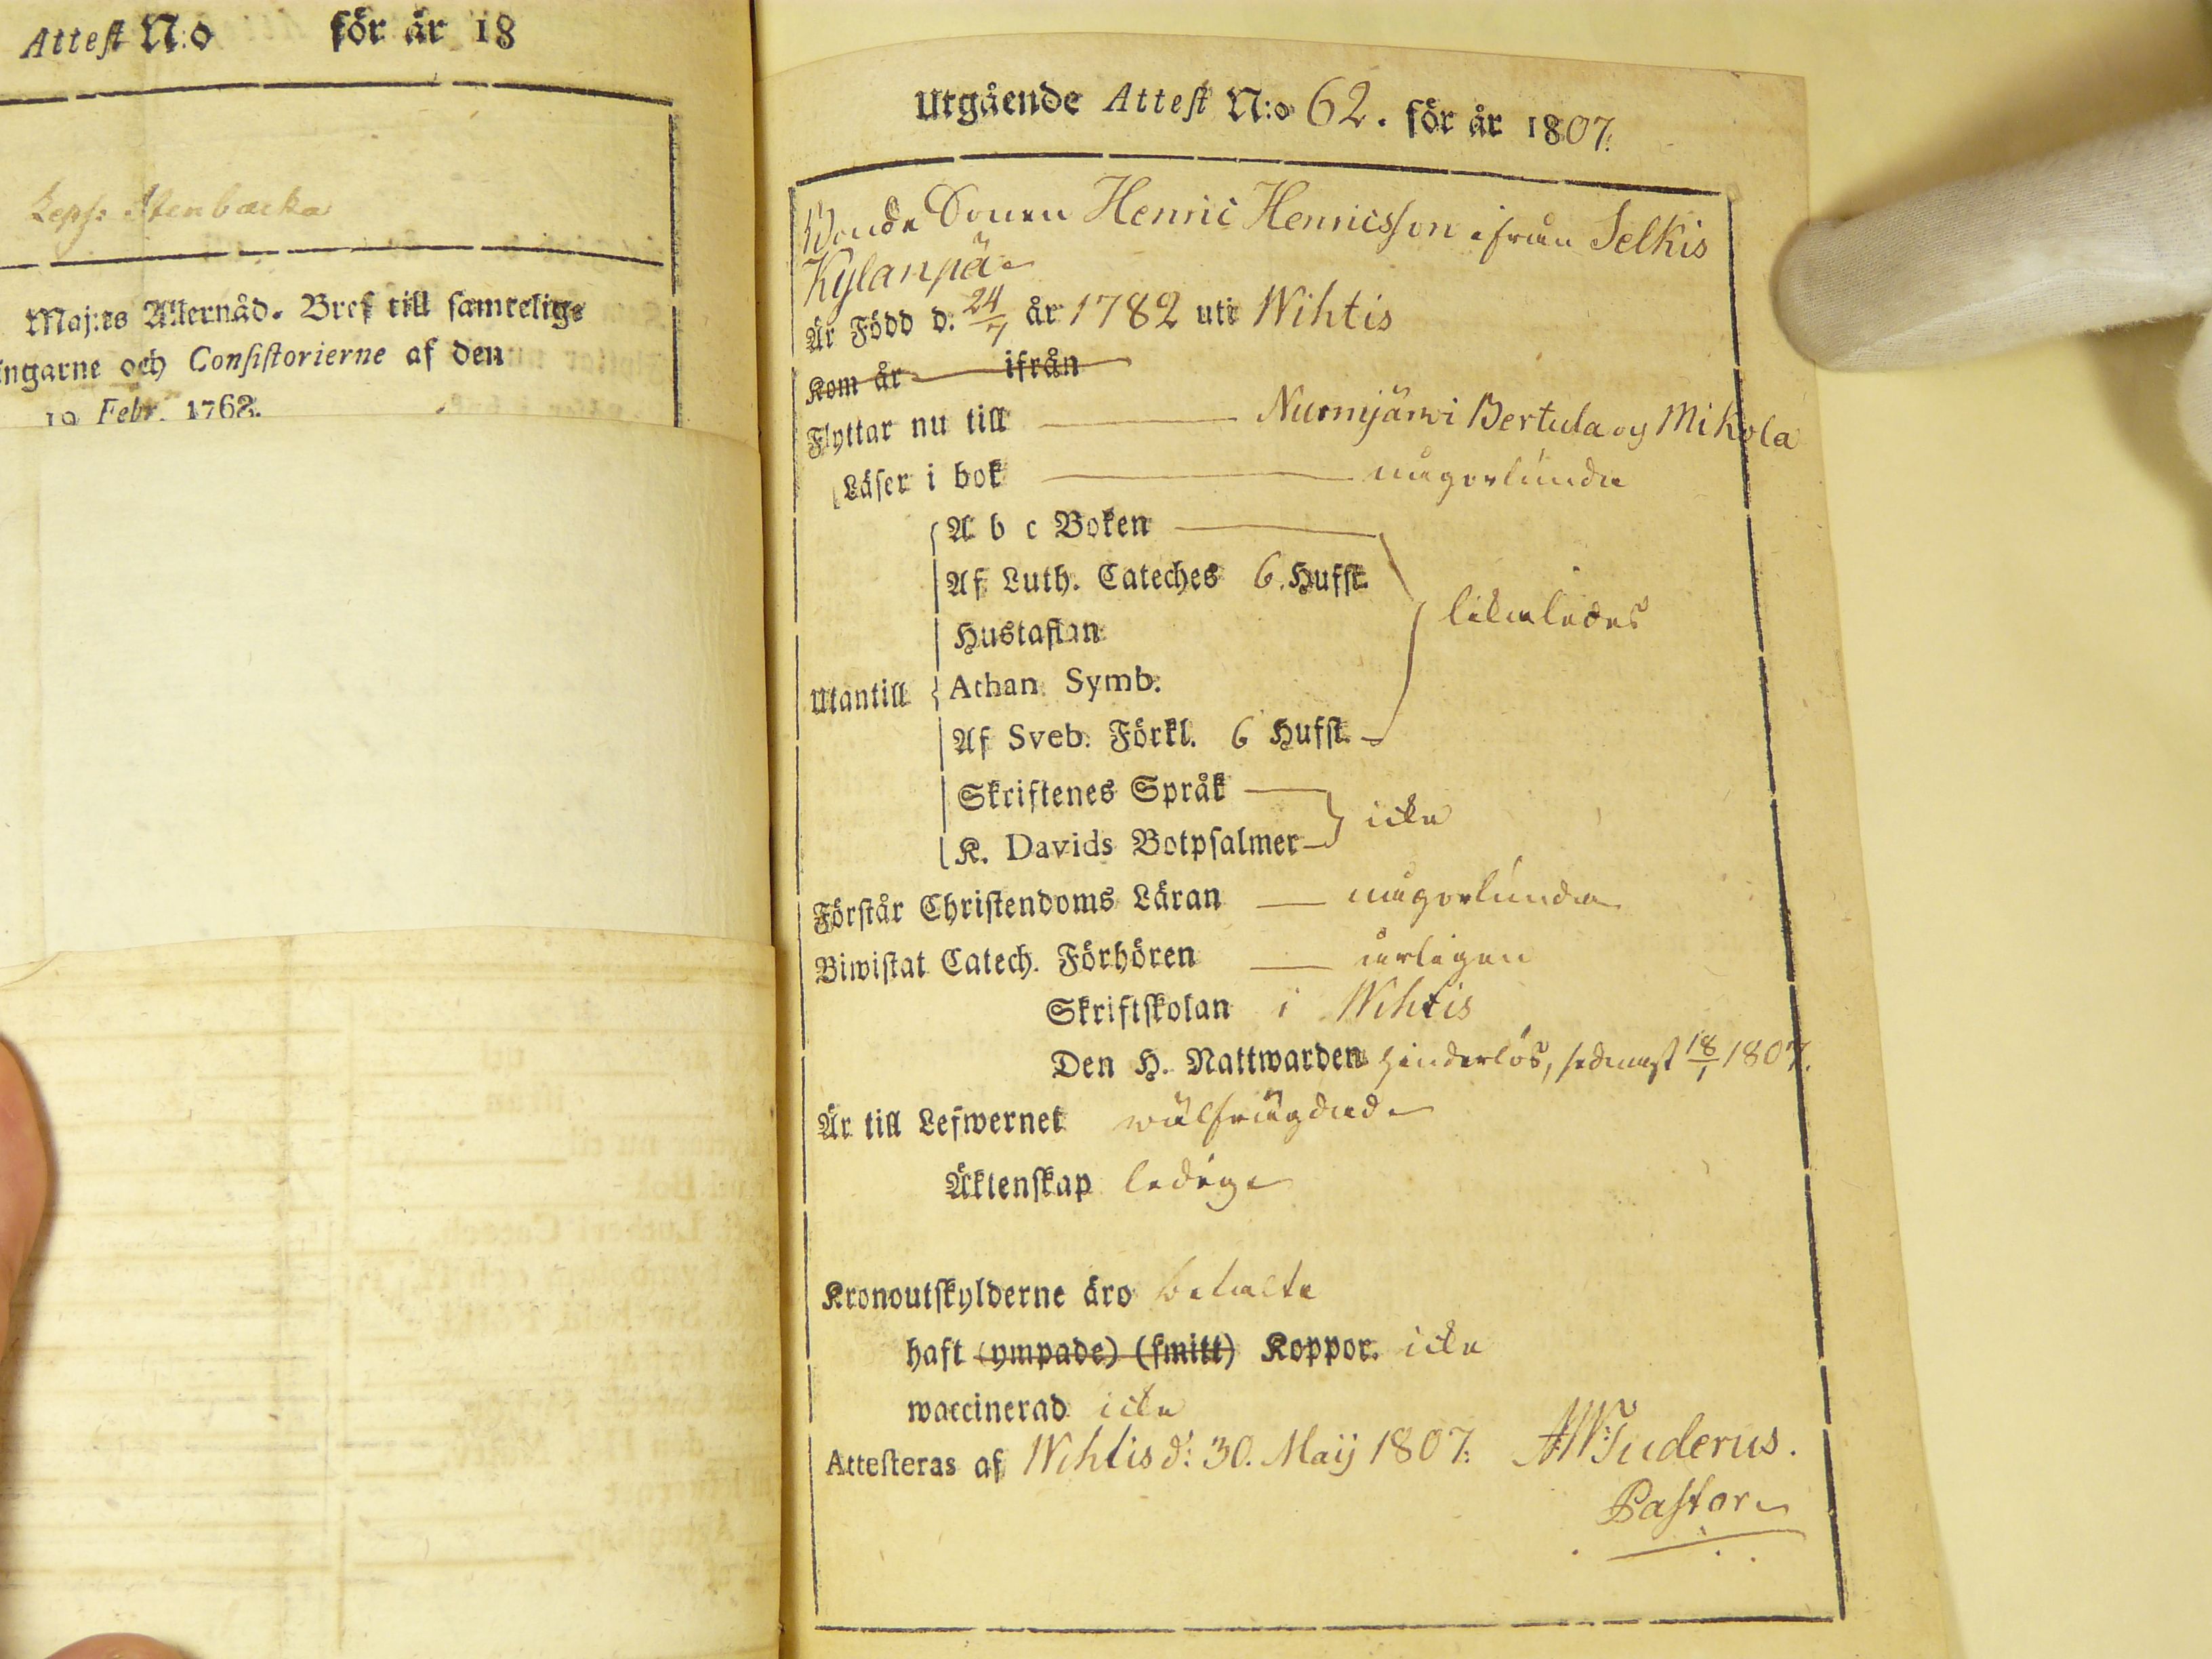 Attest N:o för år 18
Leps: Stenbacka
Maj:ts Allernåd. Bref till samtelige
ingarne och Consistorierne af den
19 Febr. 1762.
Utgående Attest N:o 62. för år 1807.
Bonde Sonen Henric Henricsson ifrån Selkis
Kylänpä
Är Född d. 24/7 år 1782 uti Wihtis
Kom år ifrån
Flyttar nu till Nurmijärvi Bertula og Mikola
Läser i bok någorlunda
A b c Boken
Af Luth. Cateches 6. Hufst.
Hustaflan
likaledes
Utantill
Athan. Symb.
Af Sveb. Förkl. 6 Hufst.
Skriftenes Språk
icke
K. Davids Botpsalmer
Förstår Christendoms Läran någorlunda
Biwistat Catech. Förhören årligen
Skriftskolan i Wihtis
Den H. Nattwarden hinderlös, sednast 18/1 1807.
Är till Lefwernet wälfrägdad
Äktenskap ledig
Kronoutskylderne äro betalte
haft (ympade) (smitt) Koppor. icke
waccinerad icke
Attesteras af Wihtis d: 30. Maij 1807. AWTuderus.
Pastor